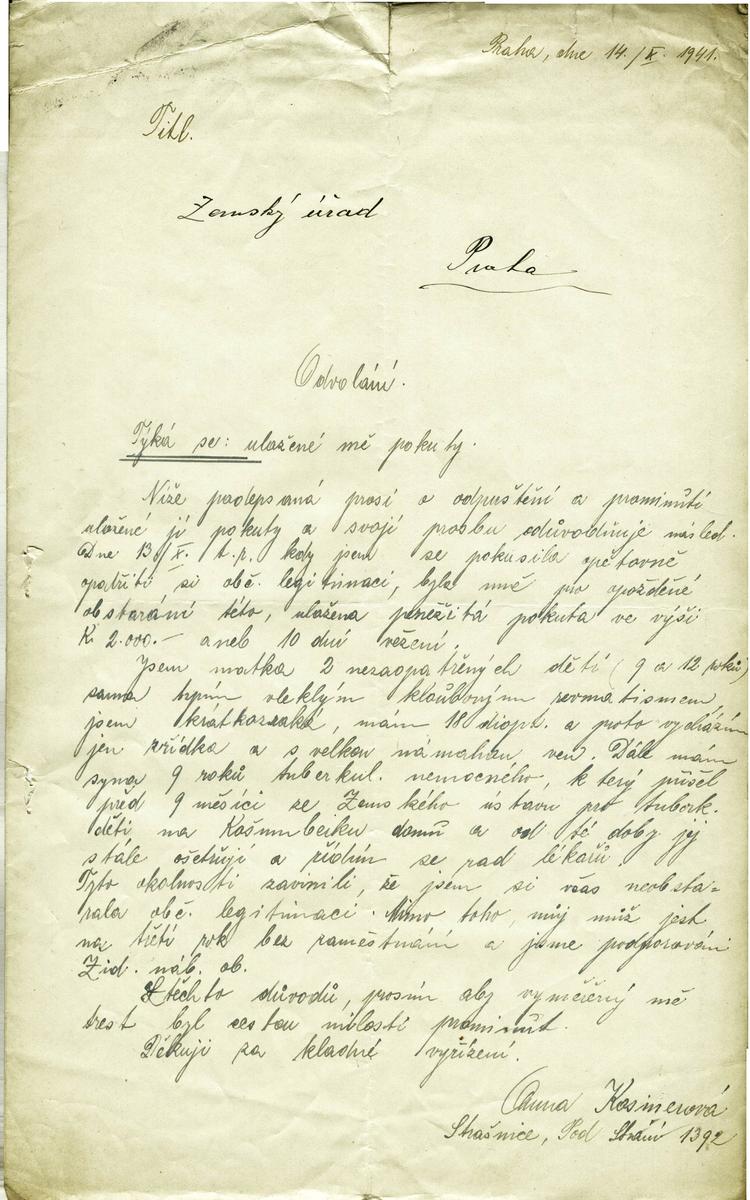 Praha, dne 14./X. 1941.
Titl.
Zemský úřad
Praha
Odvolání.
Týká se: uložené mě pokuty.
Níže podepsaná prosí o odpuštění a prominutí
uložené jí pokuty a svoji prosbu odůvodňuje násled.
Dne 13./X. t.r. kdy jsem se pokusila opětovně
opatřiti si obč. legitimaci, byla mně pro opožděné
obstarání této, uložena peněžitá pokuta ve výši
K 2.000.- aneb 10 dní vězení.
Jsem matka 2 nezaopatřených dětí (9 a 12 roků)
sama trpím vleklým kloubovným revmatismem,
jsem krátkozraká, mám 18 diopt. a proto vycházím
jen zřídka a s velkou námahou ven. Dále mám
syna 9 roků tuberkul. nemocného, který přišel
před 9 měsíci ze Zemského ústavu pro tuberk.
děti na Košumberku domů a od té doby jej
stále ošetřuji a řídím se rad lékařů.
Tyto okolnosti zavinili, že jsem si včas neobsta-
rala obč. legitimaci. Mimo toho, můj muž jest
na třetí rok bez zaměstnání a jsme podporováni
Žid. náb. ob.
Z těchto důvodů, prosím aby vyměřený mě
trest byl cestou milosti prominut.
Děkuji za kladné vyřízení.
Anna Kosinerová
Strašnice, Pod Strání 1392